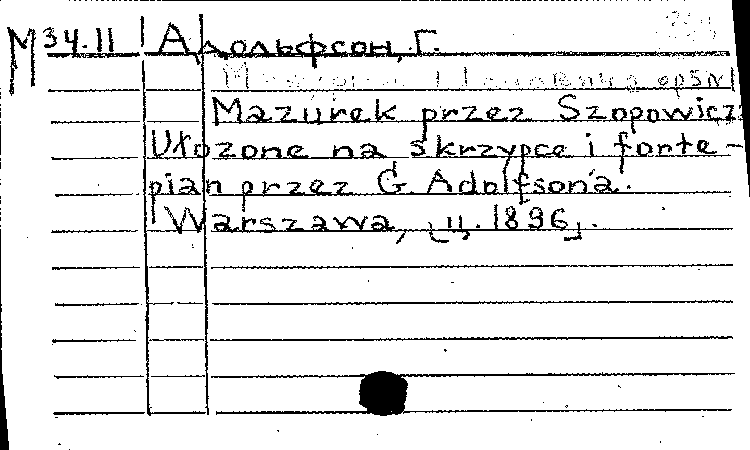 M 34.11 Адольфсон, Г.
op5N1
Mazurek przez Szopowicz
Ułozone na skrzypce i forte-
pian przez G. Adolfsona.
Warszawa, [ц. 1896].